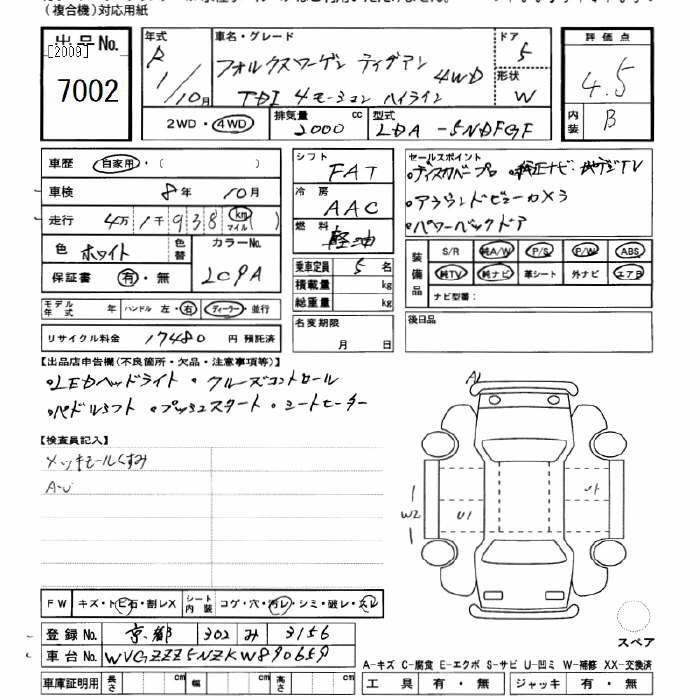 (複合機)対応用紙
出品No.
[2009]
7002
年式
R 1/10月
車名・グレード
フォルクスワーゲン ティグアン 4WD
TDI 4モーション ハイライン
ドア 5
形状 W
2WD・4WD
排気量 2000 cc
型式 LDA-5NDFGF
評価点
4.5
内装 B
車歴 自家用・( )
車検 8年 10月
走行 4万 1千 9 3 8 km マイル ( )
色 ホワイト 色替 カラーNo.
保証書 有・無 LC9A
モデル年式 年 ハンドル 左・右 ディーラー・並行
リサイクル料金 17480 円 預託済
シフト FAT
冷房 AAC
燃料 軽油
乗車定員 5 名
積載量 kg
総重量 kg
名変期限
月 日
セールスポイント
・ディスカバープロ ・純正ナビ・地デジTV
・アラウンドビューカメラ
・パワーバックドア
装備品
S/R 純A/W P/S P/W ABS
純TV 純ナビ 革シート 外ナビ エアB
ナビ型番:
後日品
【出品店申告欄(不良箇所・欠品・注意事項等)】
・LEDヘッドライト ・クルーズコントロール
・パドルシフト ・プッシュスタート ・シートヒーター
【検査員記入】
メッキモールくすみ
A-U
A1
W2
U1
FW キズ・トビ石・割レX シート内装 コゲ・穴・汚レ・シミ・破レ・スレ
登録No. 京都 302 み 3156
車台No. WVGZZZ5NZKW890659
車庫証明用 長さ cm 幅 cm 高さ cm
スペア
A-キズ C-腐食 E-エクボ S-サビ U-凹ミ W-補修 XX-交換済
工具 有・無 ジャッキ 有・無